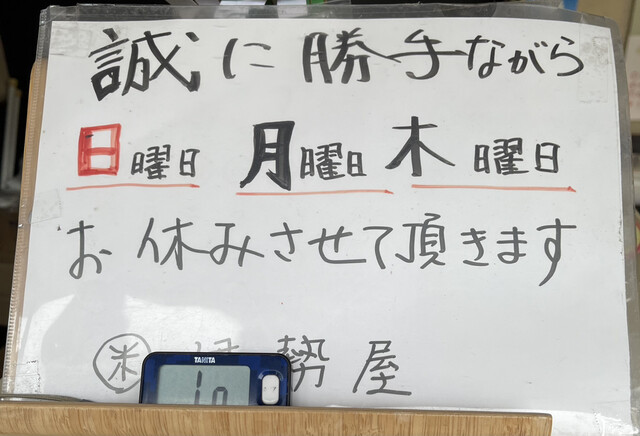 誠に勝手ながら
日曜日 月曜日 木曜日
お休みさせて頂きます
米 勢屋
TANITA